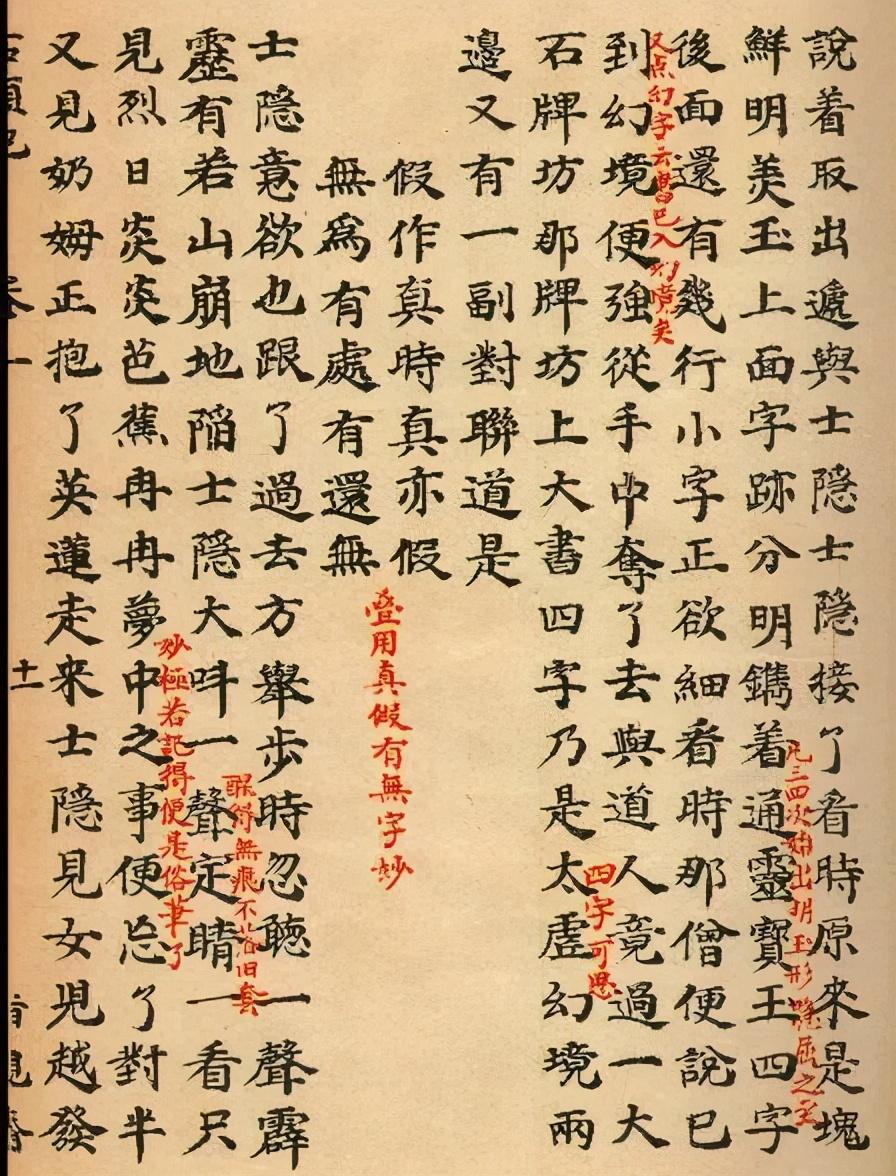 說着取出遞與士隱士隱接了看時原來是塊
凡三四次始出明玉形隱屈之至
鮮明美玉上面字跡分明鐫着通靈寶玉四字
後面還有幾行小字正欲細看時那僧便說已
又点幻字云書已入幻境矣
到幻境便強從手中奪了去與道人竟過一大
四字可思
石牌坊那牌坊上大書四字乃是太虛幻境兩
邊又有一副對聯道是
假作真時真亦假
無爲有處有還無
叠用真假有無字妙
士隱意欲也跟了過去方舉步時忽聽一聲霹
醒得無痕不落旧套
靂有若山崩地陷士隱大叫一聲定睛一看只
妙極若記得便是俗筆了
見烈日炎炎芭蕉冉冉夢中之事便忘了對半
又見奶姆正抱了英蓮走来士隱見女児越發
十一